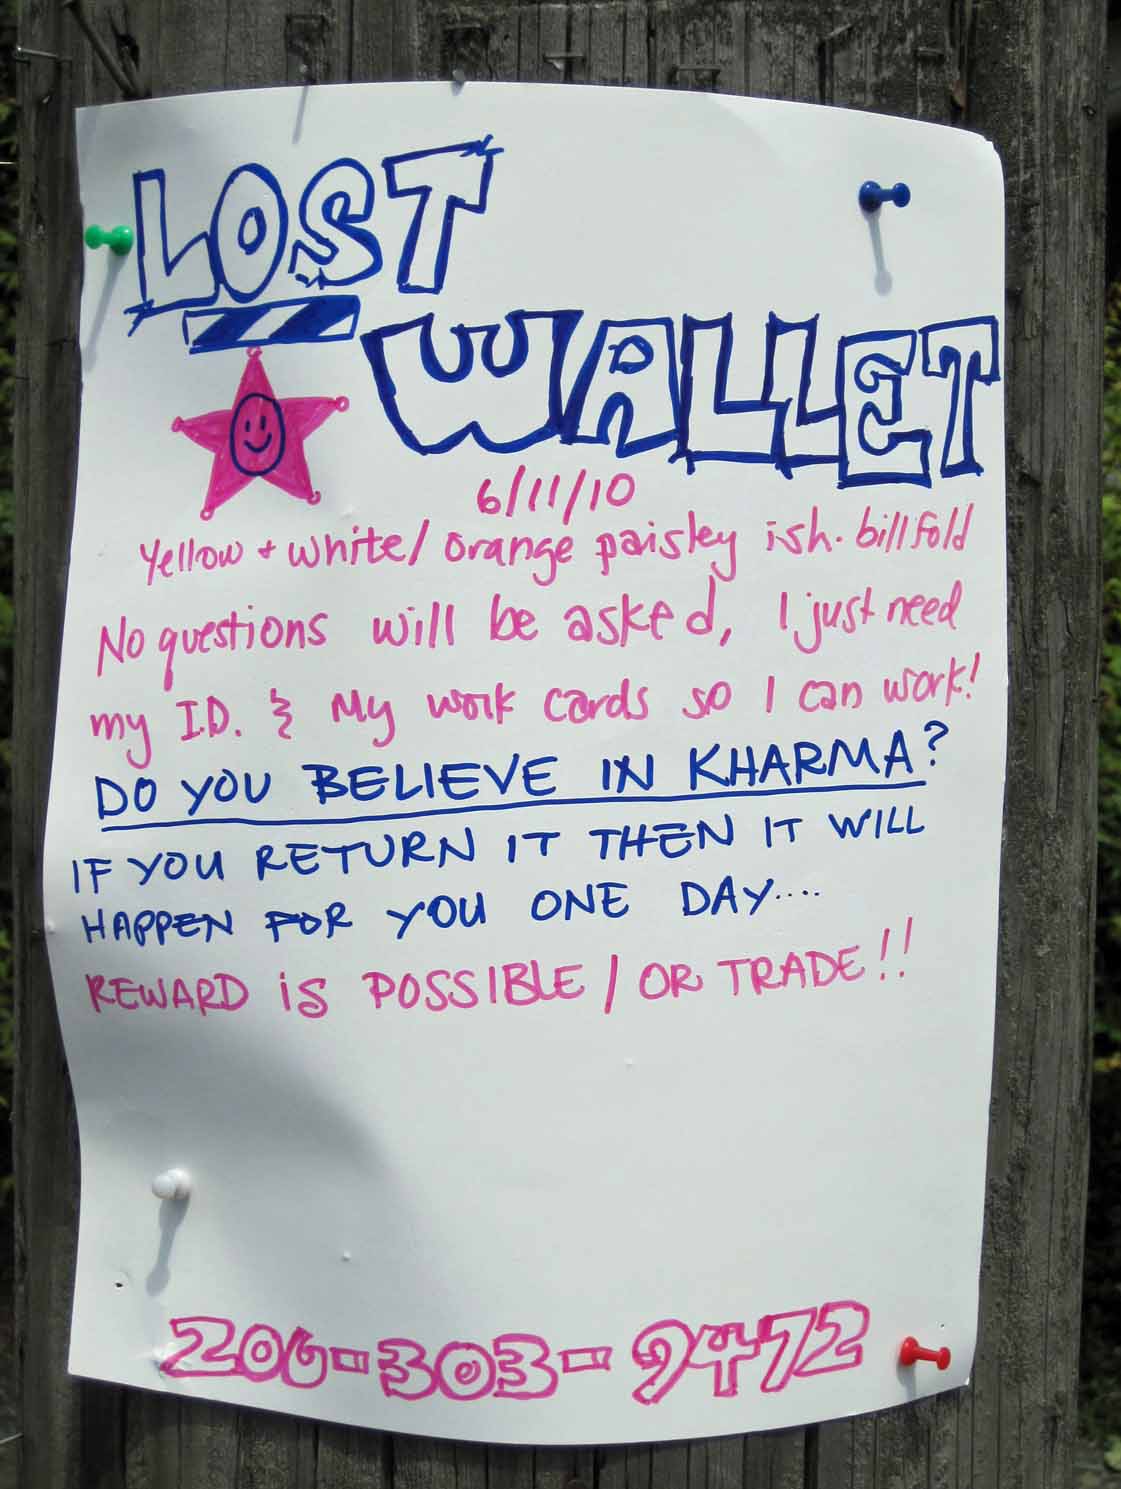 LOST
WALLET
6/11/10
Yellow + white/ orange paisley ish. billfold
No questions will be asked, I just need
my I.D. & My work cards so I can work!
DO YOU BELIEVE IN KHARMA?
IF YOU RETURN IT THEN IT WILL
HAPPEN FOR YOU ONE DAY....
REWARD iS POSSIBLE / OR TRADE!!
206-303-9472